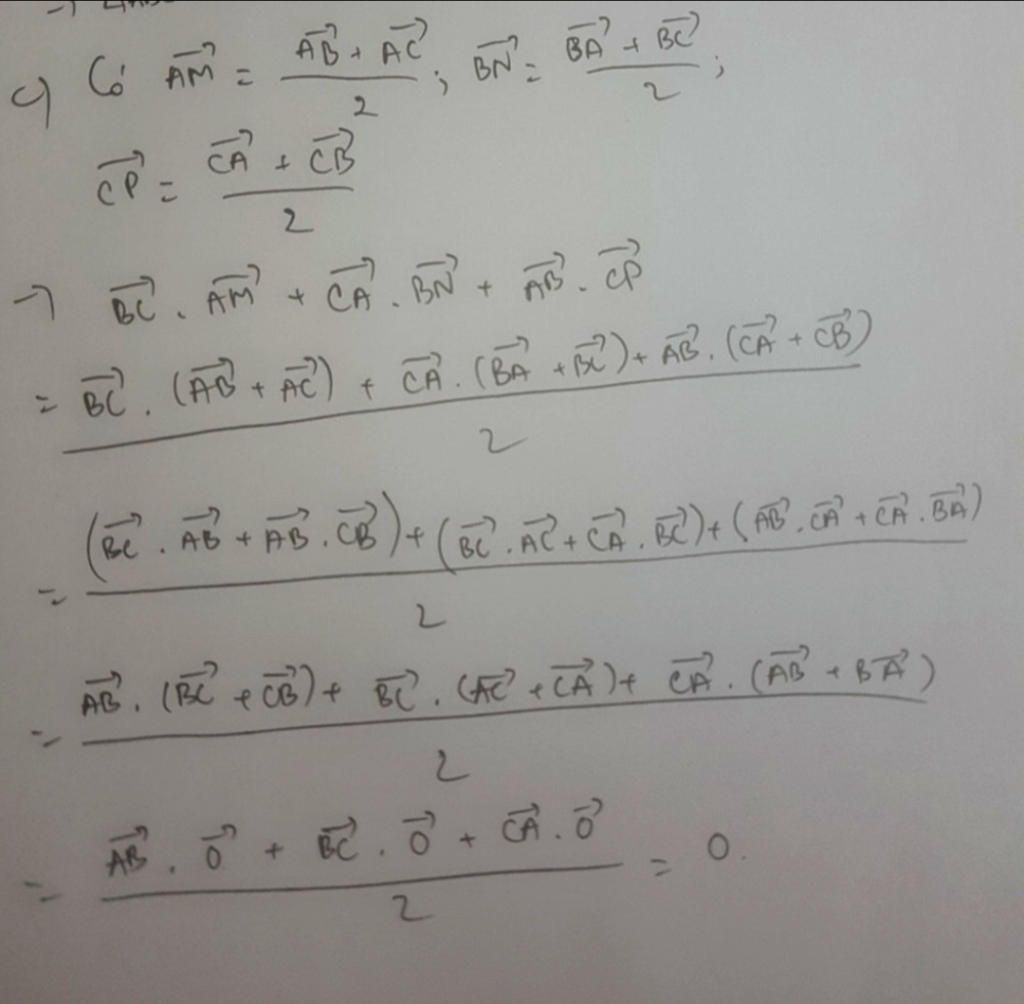 c) Có $\overrightarrow{AM} = \frac{\overrightarrow{AB} + \overrightarrow{AC}}{2}$; $\overrightarrow{BN} = \frac{\overrightarrow{BA} + \overrightarrow{BC}}{2}$;
$\overrightarrow{CP} = \frac{\overrightarrow{CA} + \overrightarrow{CB}}{2}$
→ $\overrightarrow{BC} . \overrightarrow{AM} + \overrightarrow{CA} . \overrightarrow{BN} + \overrightarrow{AB} . \overrightarrow{CP}$
$= \frac{\overrightarrow{BC} . (\overrightarrow{AB} + \overrightarrow{AC}) + \overrightarrow{CA} . (\overrightarrow{BA} + \overrightarrow{BC}) + \overrightarrow{AB} . (\overrightarrow{CA} + \overrightarrow{CB})}{2}$
$= \frac{(\overrightarrow{BC} . \overrightarrow{AB} + \overrightarrow{AB} . \overrightarrow{CB}) + (\overrightarrow{BC} . \overrightarrow{AC} + \overrightarrow{CA} . \overrightarrow{BC}) + (\overrightarrow{AB} . \overrightarrow{CA} + \overrightarrow{CA} . \overrightarrow{BA})}{2}$
$= \frac{\overrightarrow{AB} . (\overrightarrow{BC} + \overrightarrow{CB}) + \overrightarrow{BC} . (\overrightarrow{AC} + \overrightarrow{CA}) + \overrightarrow{CA} . (\overrightarrow{AB} + \overrightarrow{BA})}{2}$
$= \frac{\overrightarrow{AB} . \overrightarrow{0} + \overrightarrow{BC} . \overrightarrow{0} + \overrightarrow{CA} . \overrightarrow{0}}{2} = 0.$